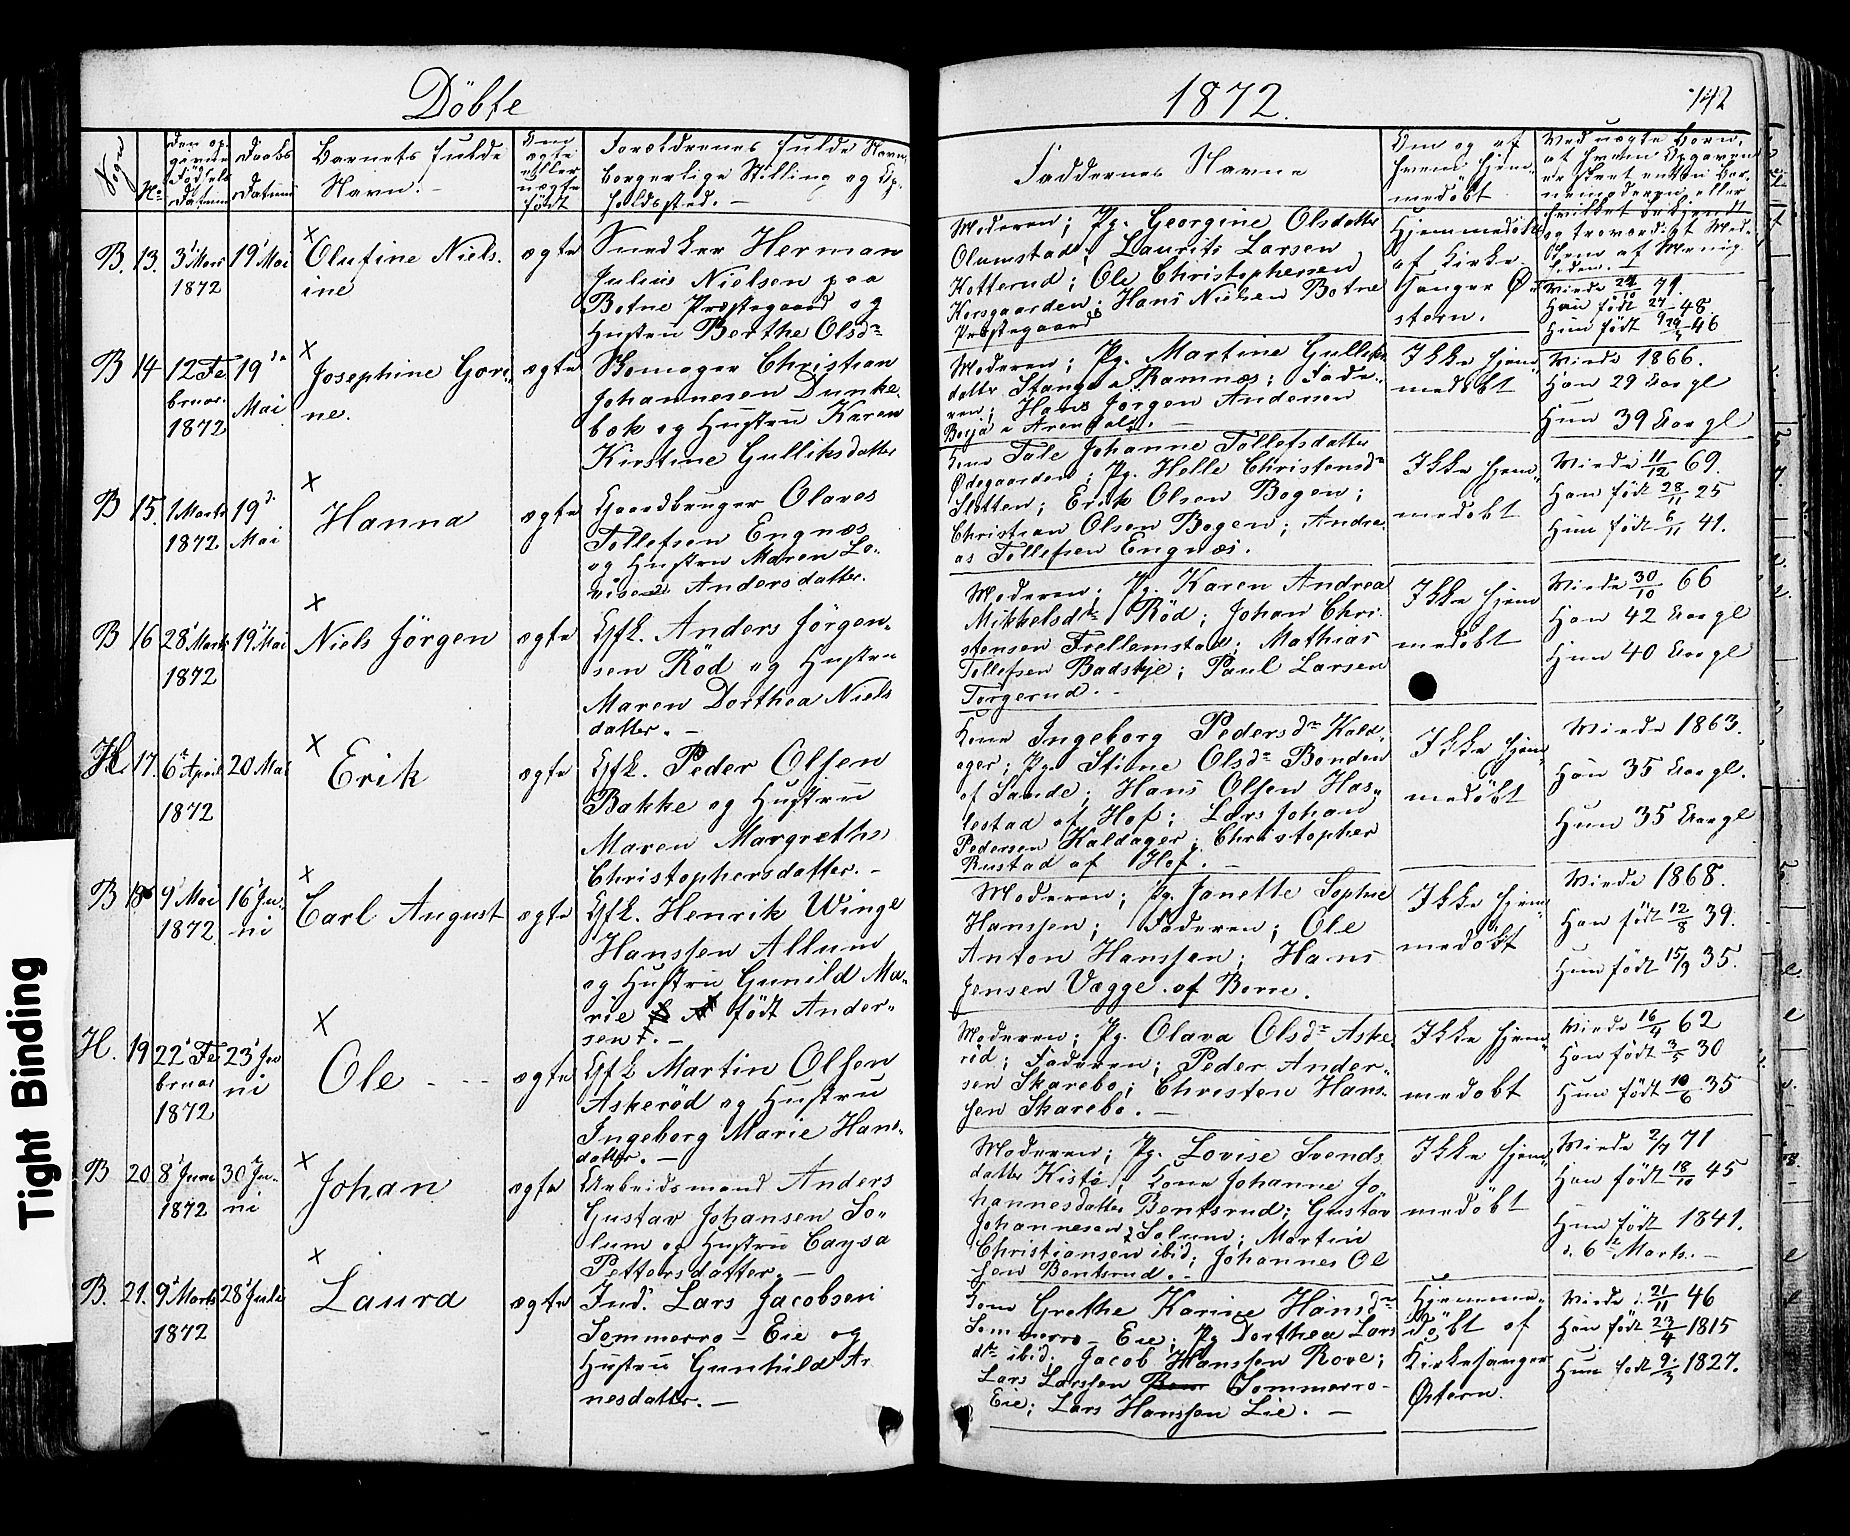 Döbte
1872.
142
Sogn
No
Den op-
givne
Fødsels
Datum
Daabs
Datum
Barnets fulde
Navn.-
Om
ægte
eller
uægte
født
Forældrenes fulde Navn,
borgerlige Stilling og Op-
holdssted. -
Faddernes Navne
Om og af
hvem hjem-
medøbt
Ved uægte Børn,
B. 13. 3' Mars 19' Mai Olufine Niels- ægte Snedker Herman
1872 ine Julius Nielsen paa
Botne Præstegaard og
Hustru Berthe Olsdr
Moderen; Pg. Georgine Olsdatter
Olumstad; Laurits Larsen
Kotterud; Ole Christophersen
Korsgaarden; Hans Nielsen Botne
Præstegaard
Hjemmedøbt
af Kirke-
sanger Ø-
stern.
Viede 24/10 71.
Han født 27/9 48
Hun født 29/3 46
B 14 12 Fe 19 Josephine Gori- ægte Skomager Christian
bruar. Mai ne. Johannesen Dunke-
1872 bek og Hustru Karen
Kirstine Gulliksdatter
Moderen; Pg. Martine Gulliks
datter Stange i Ramnæs; Fade-
ren; Hans Jørgen Andersen
Borja i Arendal. -
Ikke hjem-
medøbt
Viede 1866.
Han 29 Aar gl
Hun 39 Aar gl
B 15. 1 Marts 19d. Hanna ægte Gaardbruger Olaves
1872. Mai Tollefsen Engnæs
og Hustru Maren Lo-
vise Andersdatter.
Kone Tale Johanne Tollefsdatter
Ødegaarden; Pg. Helle Christensdr
Sletten; Erik Olsen Bogen;
Christian Olsen Bogen; Andre-
as Tollefsen Engnæs.
Ikke hjem-
medøbt
Viede 11/12 69.
Han født 28/11 25
Hun født 6/11 41.
B 16 28' Marts 19' Mai Niels Jörgen ægte Gfk. Anders Jörgen-
1872 sen Röd og Hustru
Maren Dorthea Niels
datter. -
Moderen; Pg. Karen Andrea
Mikkelsdtr Röd; Johan Chri-
stensen Frellumstad; Mathias
Tollefsen Badstje; Paul Larsen
Torgerud. -
Ikke hjem
medøbt
Viede 30/10 66
Han 42 Aar gl
Hun 40 Aar gl
H. 17. 6te April 20 Mai Erik ægte Gfk. Peder Olsen
1872 Bakke og Hustru
Maren Margrethe
Christophersdatter. -
Kone Ingeborg Pedersdr Kald-
ager; Pg. Stine Olsdr Bonden
af Sande; Hans Olsen Has-
lestad af Hof; Lars Johan
Pedersen Kaldager; Christopher
Rustad af Hof. -
Ikke hjem-
medøbt
Viede 1863.
Han 35 Aar gl.
Hun 35 Aar gl
B 18 9' Mai 16' Ju- Carl August ægte Gfk. Henrik Winge
1872 ni Hanssen Allum
og Hustru Gunild Ma-
rie født Ander-
sen. -
Moderen; Pg. Janette Sophie
Hanssen; Faderen; Ole
Anton Hanssen; Hans
Jensen Vægge af Borre.
Ikke hjem-
medøbt
Viede 1868.
Han født 12/8 39.
Hun født 15/9 35.
H. 19 22' Fe 23' Ju Ole - - - ægte Gfk Martin Olsen
bruar ni Askeröd og Hustru
1872 Ingeborg Marie Hans-
datter. -
Moderen; Pg. Olava Olsdr Aske-
röd; Faderen; Peder Ander-
sen Skarebo; Christen Hans-
sen Skarebo. -
Ikke hjem-
medøbt
Viede 16/4 62
Han født 3/5 30
Hun født 10/6 35
B 20 8' Juni 30' Ju- Johan ægte Arbeidsmand Anders
1872 ni Gustav Johansen So-
lum og Hustru Caysa
Pettersdatter. -
Moderen; Pg. Lovise Svends
datter Kistö; Kone Johanne Jo
hannesdatter Bentsrud; Gustav
Johannesen Solum; Martin
Christiansen ibid; Johannes Ol
sen Bentsrud. -
Ikke hjem-
medøbt
Viede 2/7 71
Han født 18/10 45
Hun født 1841.
d. 6te Marts. -
B. 21. 9' Marts 28' Juli Laura ægte Ind. Lars Jacobsen
1872 Sommerro - Eie og
Hustru Gunhild Ar
nesdatter. -
Kone Grethe Karine Hansdr
Sommerro - Eie; Pg Dorthea Lars
dtr ibid; Jacob Hanssen Rove;
Lars Larssen Sommerro-
Eie; Lars Hanssen Lie. -
Hjemme-
døbt af
Kirkesanger
Østern.
Viede 21/11 46
Han født 23/4 1815
Hun født 9/3 1827.
Tight Binding